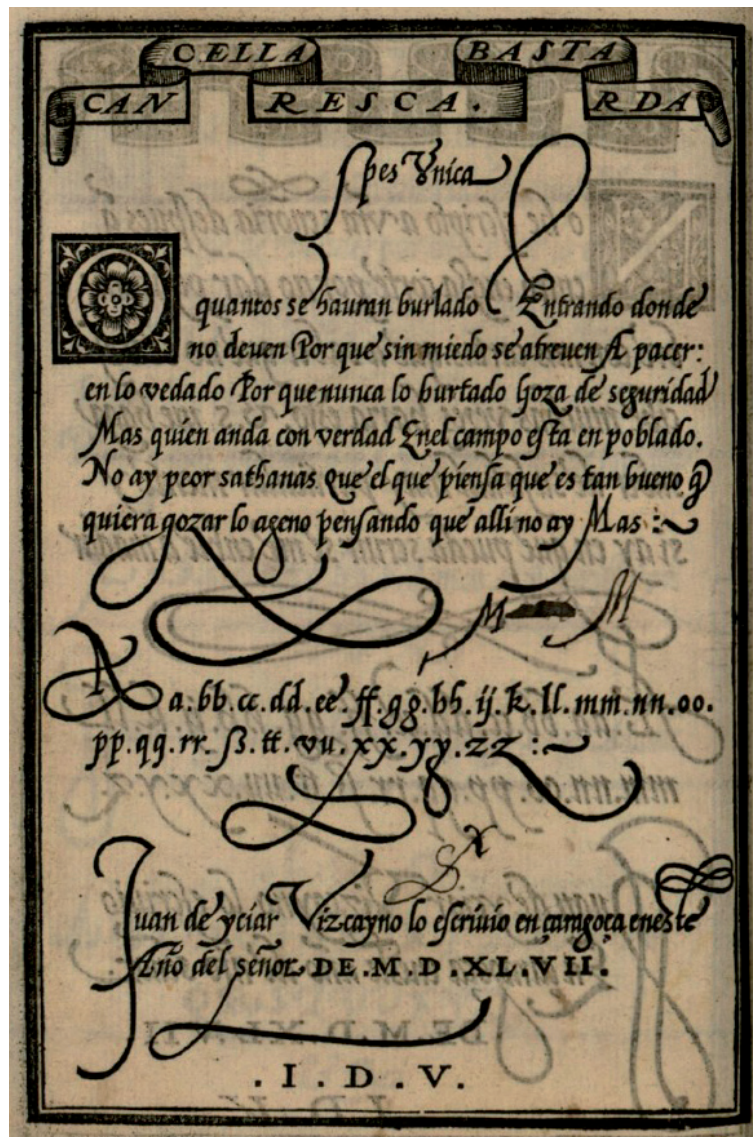 CANCELLARESCA. BASTARDA
spes Vnica
O quantos se hauran burlado Entrando donde
no deuen Por que sin miedo se atreuen A pacer:
en lo vedado Por que nunca lo hurtado hoza de seguridad
Mas quien anda con verdad Enel campo esta en poblado.
No ay peor sathanas que el que piensa que es tan bueno q̃
quiera gozar lo ageno pensando que alli no ay Mas :~
M M
A a.bb.cc.dd.ee.ff.gg.hh.ij.k.ll.mm.nn.oo.
pp.qq.rr.ſs.tt.vu.xx.yy.zz :~
x
Juan de yciar Vizcayno lo escriuio en çaragoça eneste
Año del señor DE.M.D.XL.VII.
.I.D.V.